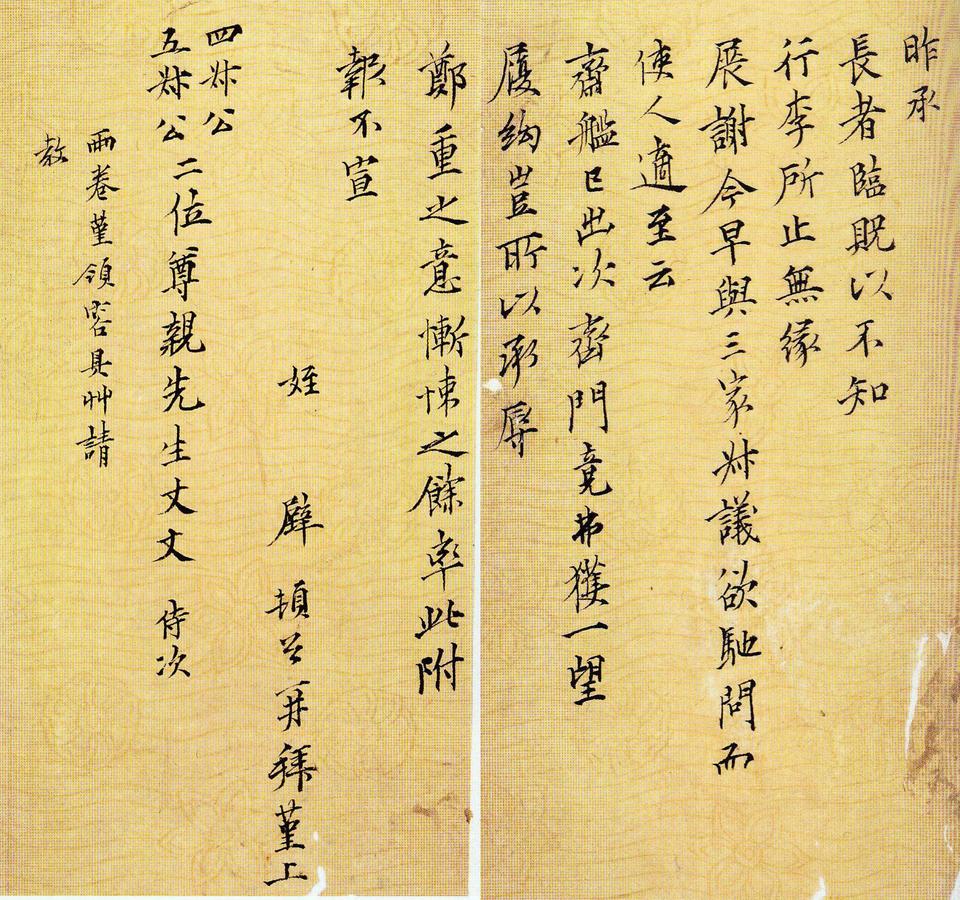 昨承
長者臨貺以不知
行李所止無緣
展謝今早與三家叔議欲馳問而
使人適至云
齋艦已出次齊門竟弗獲一望
履絇豈所以承辱
鄭重之意慚悚之餘率此附
報不宣
姪 璧 頓首再拜堇上
四叔公
五叔公二位尊親先生丈丈 侍次
兩卷堇領容具艸請
教